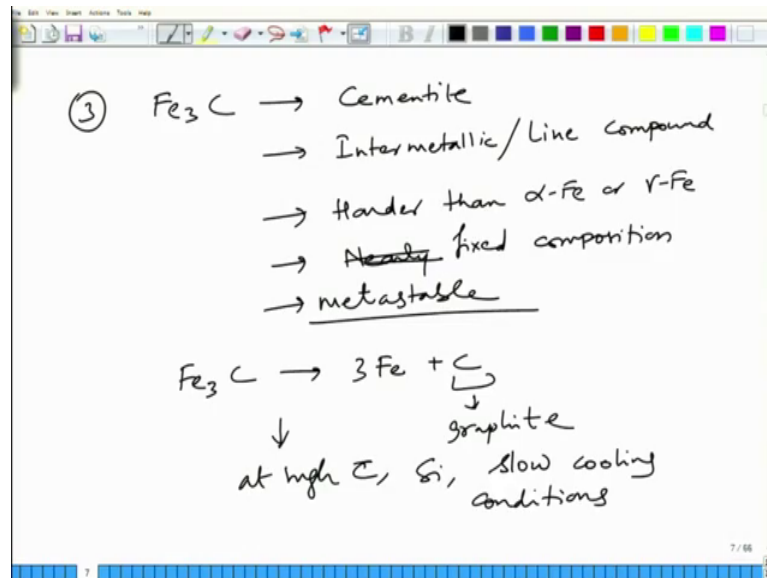 File Edit View Insert Actions Tools Help
B I
③ Fe₃C → Cementite
→ Intermetallic/Line compound
→ Harder than α-Fe or γ-Fe
→ Nearly fixed composition
→ metastable
Fe₃C → 3Fe + C
↓ ↓
graphite
at high C, Si, slow cooling
conditions
7/66
7